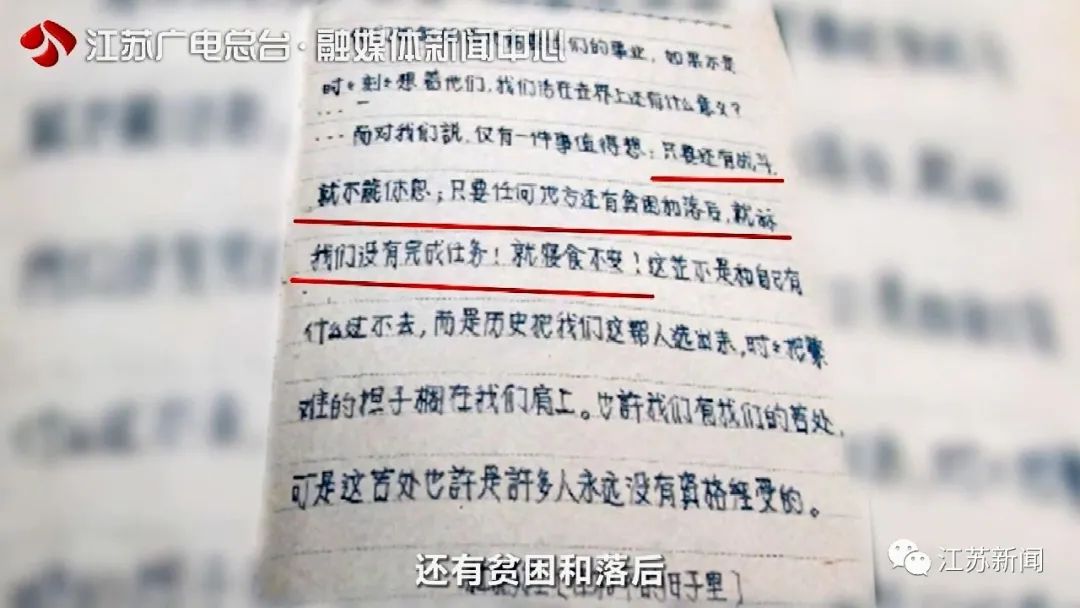 江苏广电总台·融媒体新闻中心
们的事业，如果不是
时々刻々想着他们，我们活在世界上还有什么意义？
……
……而对我们説，仅有一件事值得想：只要还有战斗，
就不能休息；只要任何地方还有贫困和落后，就
我们没有完成任务！就寝食不安！这並不是和自己有
什么过不去，而是历史把我们这帮人选出来，时々把繁
难的担子搁在我们肩上。也許我们有我们的苦处，
可是这苦处也許是許多人永远没有資格经受的。
的日子里]
还有贫困和落后
江苏新闻